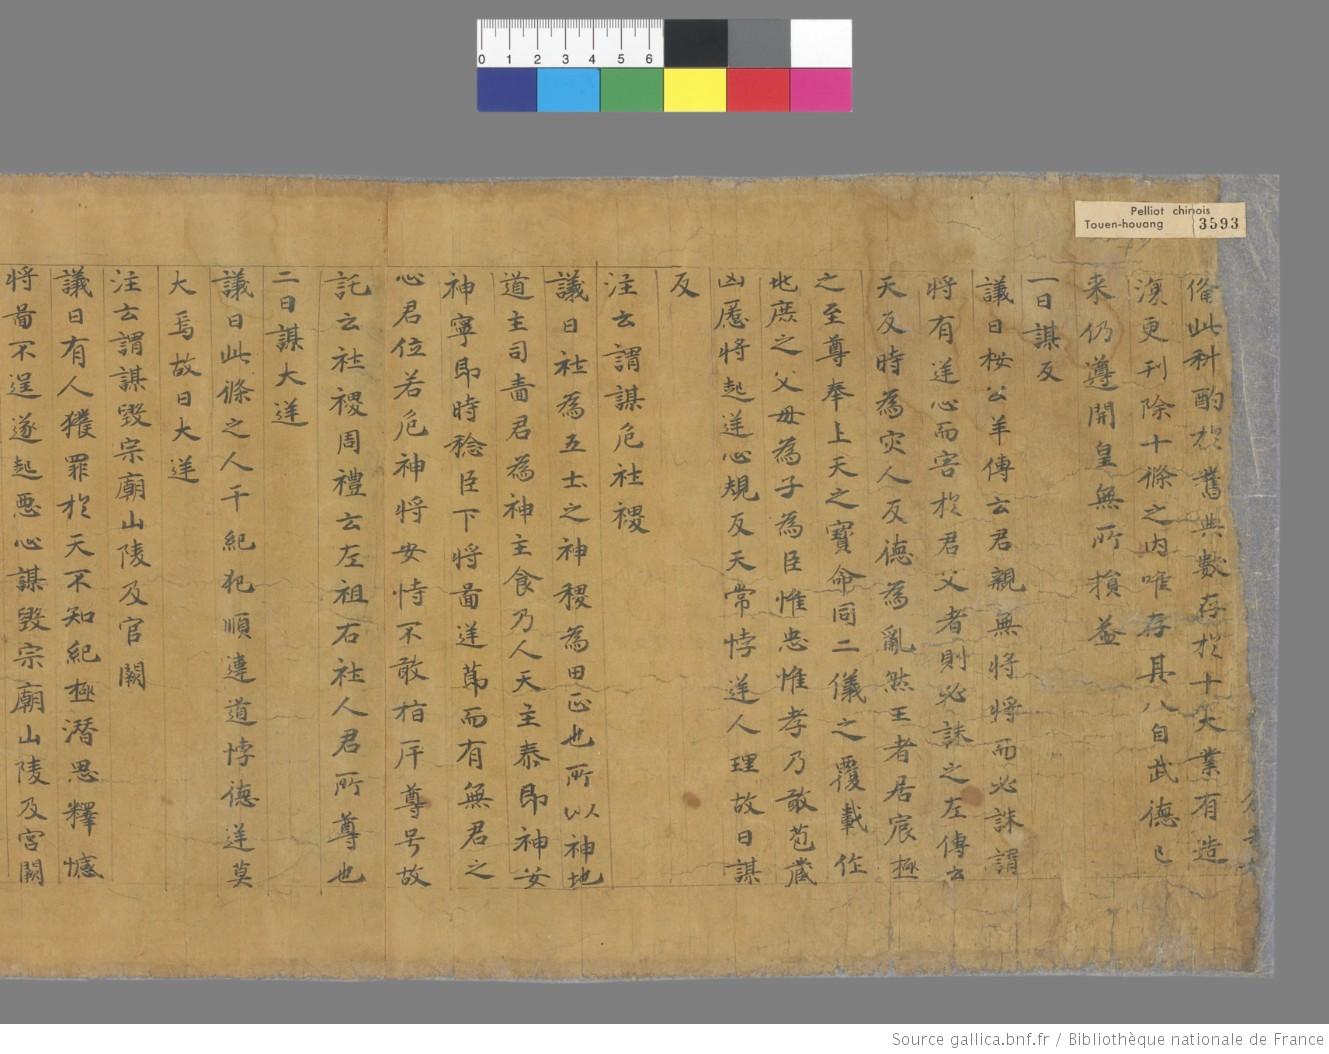 0 1 2 3 4 5 6
Pelliot chinois
Touen-houang 3593
俻此科酌於舊典數存於十大業有造
復更刊除十條之内唯存其八自武德已
来仍遵開皇無所損益
一曰謀反
議曰桉公羊傳云君親無將將而必誅謂
將有逆心而害於君父者則必誅之左傳云
天反時為灾人反德為亂然王者居宸極
之至尊奉上天之寶命同二儀之覆載作
兆庶之父母為子為臣惟忠惟孝乃敢苞藏
凶慝將起逆心規反天常悖逆人理故曰謀
反
注云謂謀危社稷
議曰社為五土之神稷為田正也所以神地
道主司嗇君為神主食乃人天主泰即神安
神寧即時稔臣下將啚逆節而有無君之
心君位若危神將安恃不敢指斥尊号故
託云社稷周禮云左祖右社人君所尊也
二曰謀大逆
議曰此條之人干紀犯順違道悖德逆莫
大焉故曰大逆
注云謂謀毀宗廟山陵及宫闕
議曰有人獲罪於天不知紀極潛思釋憾
將啚不逞遂起惡心謀毀宗廟山陵及宫闕
Source gallica.bnf.fr / Bibliothèque nationale de France